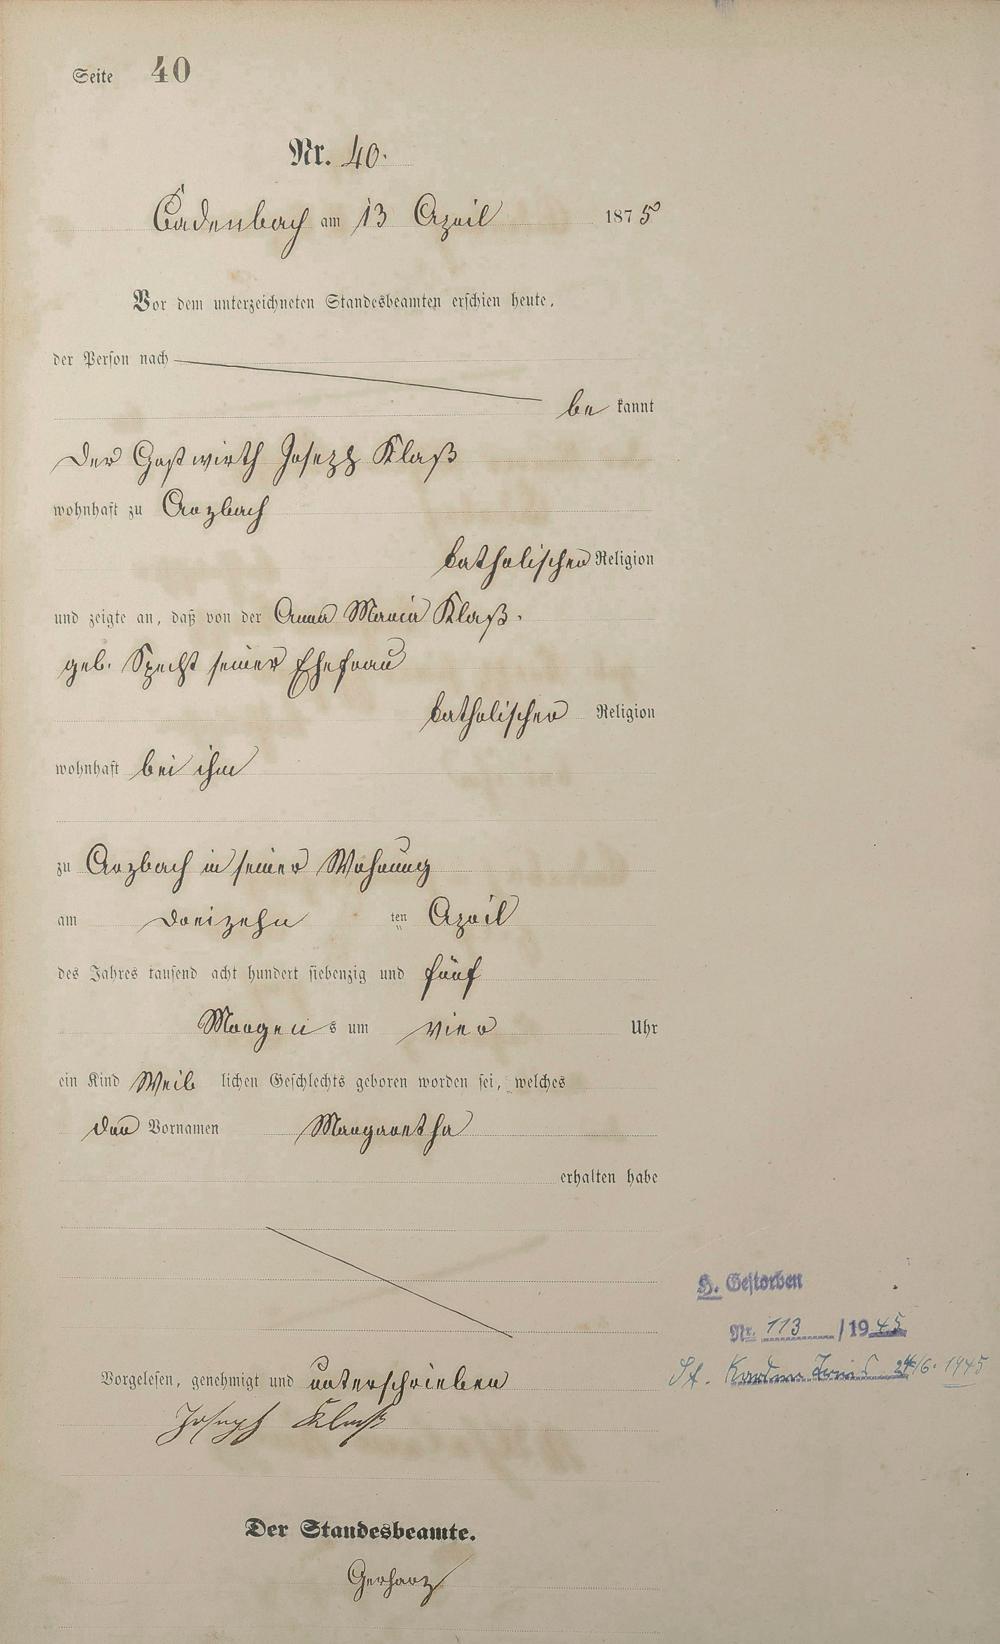 Seite 40
Nr. 40.
Cadenbach am 13 April 1875
Vor dem unterzeichneten Standesbeamten erschien heute,
der Person nach
be kannt
Der Gastwirth Joseph Klaß
wohnhaft zu Arzbach
katholischer Religion
und zeigte an, daß von der Anna Maria Klaß.
geb. Specht seiner Ehefrau
katholischer Religion
wohnhaft bei ihm
zu Arzbach in seiner Wohnung
am dreizehn ten April
des Jahres tausend acht hundert siebenzig und fünf
Morgen s um vier Uhr
ein Kind Weib lichen Geschlechts geboren worden sei, welches
den Vornamen Margaretha
erhalten habe
H. Gestorben
Nr. 113 /1945
St. 24/6. 1945
Vorgelesen, genehmigt und unterschrieben
Joseph Klaß
Der Standesbeamte.
Gerharz